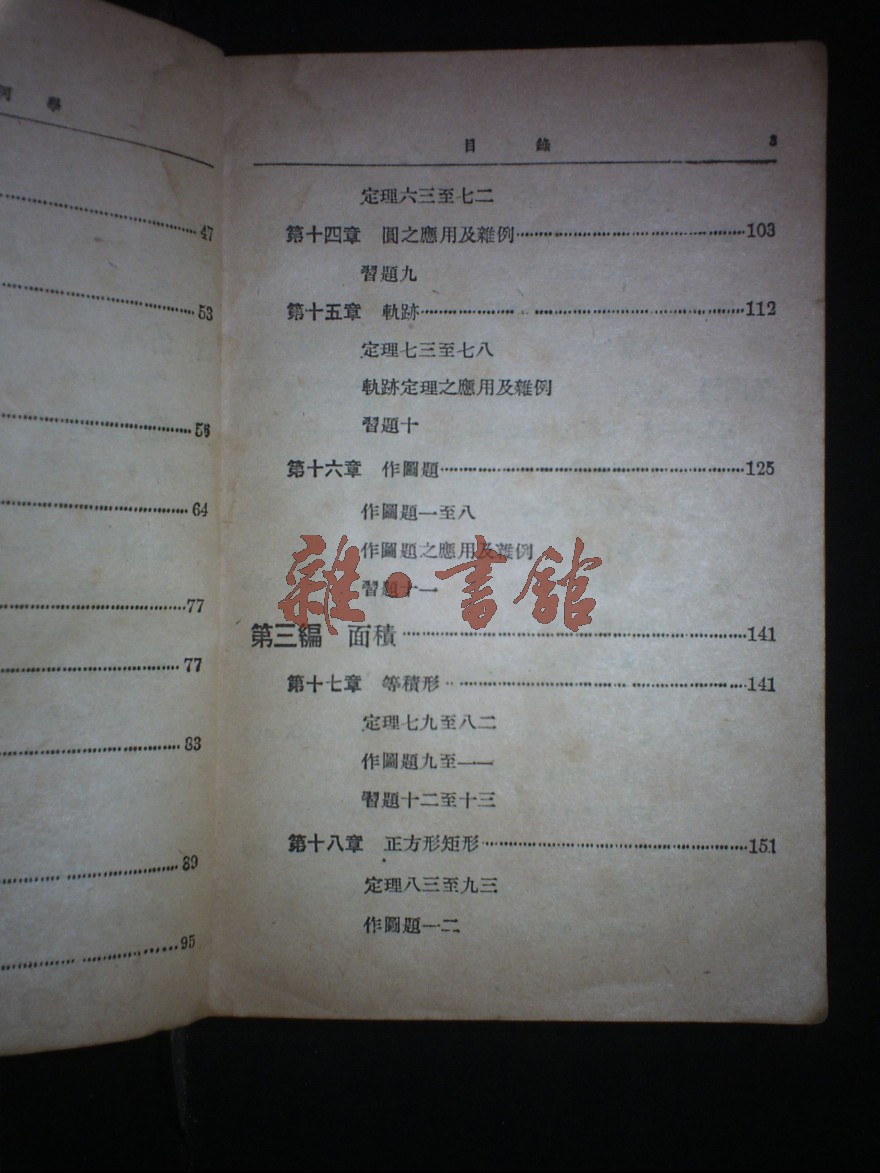 學
47
53
56
64
77
77
83
89
95
目 錄 3
定理六三至七二
第十四章 圓之應用及雜例 103
習題九
第十五章 軌跡 112
定理七三至七八
軌跡定理之應用及雜例
習題十
第十六章 作圖題 125
作圖題一至八
作圖題之應用及雜例
習題十一
雜·書館
第三編 面積 141
第十七章 等積形 141
定理七九至八二
作圖題九至一一
習題十二至十三
第十八章 正方形矩形 151
定理八三至九三
作圖題一二